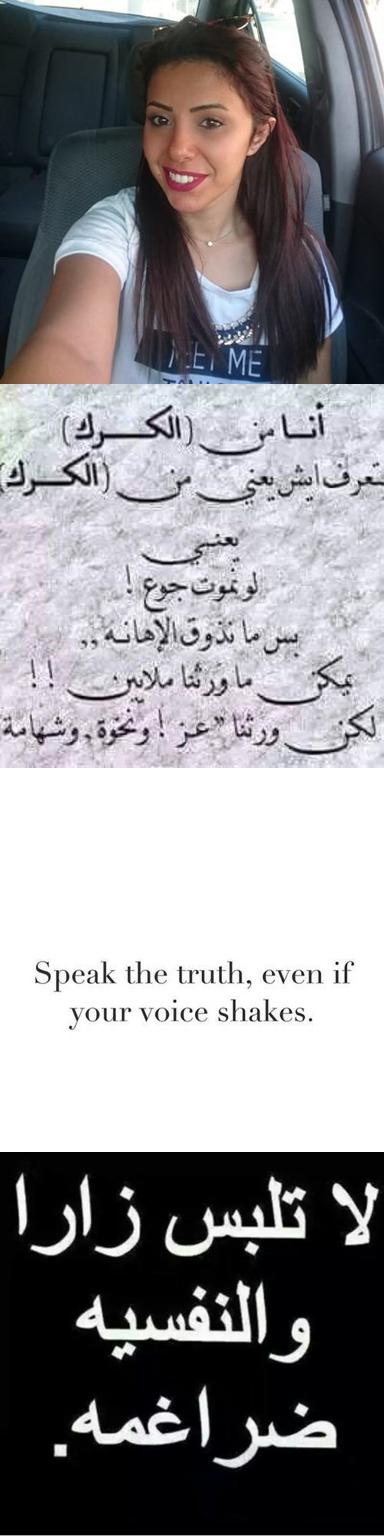 MEET ME
أنا من (الكرك)
تعرف ايش يعني من (الكرك)
يعني
لو نموت جوع !
بس ما نذوق الإهانه ,,
يمكن ما ورثنا ملايين !!
لكن ورثنا "عز ! ونخوة، وشهامة
Speak the truth, even if
your voice shakes.
لا تلبس زارا
والنفسيه
ضراغمه.